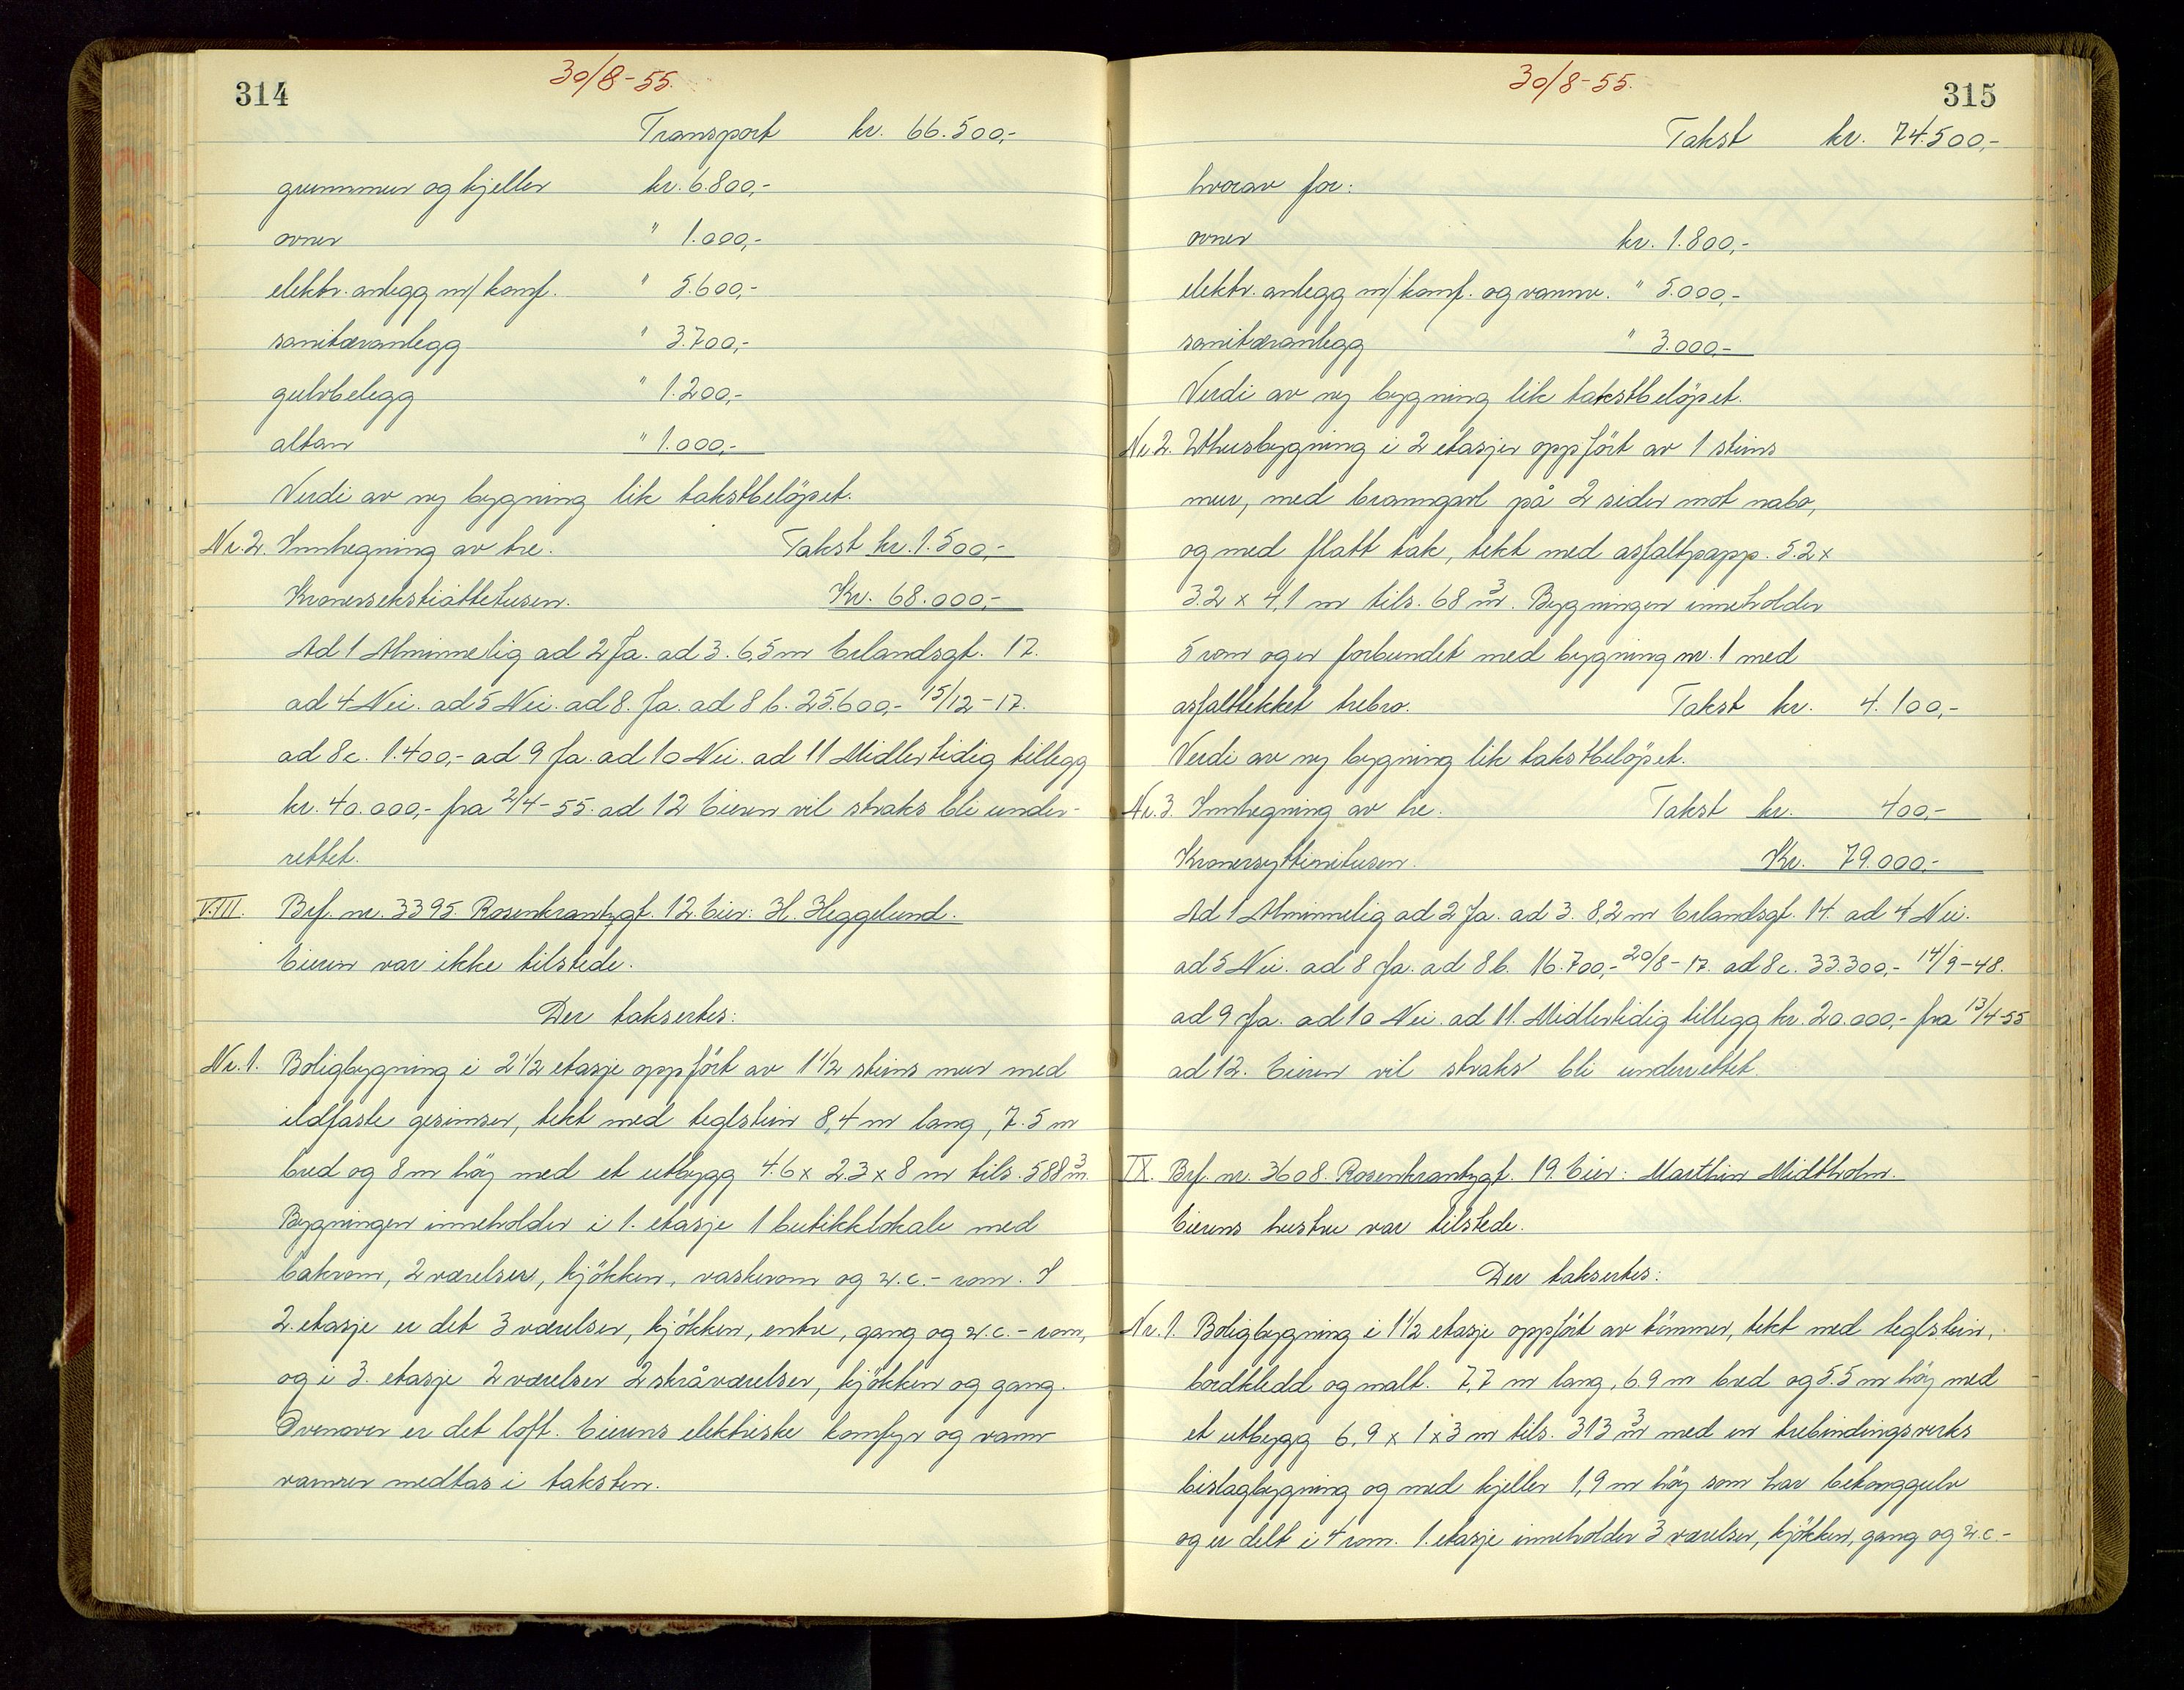 314
30/8-55.
Transport kr. 66.500,-
grunnmur og kjeller kr. 6.800,-
ovner " 1.000,-
elektr. anlegg m/ komf. " 5.600,-
sanitæranlegg " 3.700,-
gulvbelegg " 1.200,-
altan " 1.000,-
Verdi av ny bygning lik takstbelöpet.
Nr. 2. Innhegning av tre. Takst kr. 1.500,-
Kronersekstiåttetusen. Kr. 68.000,-
Ad 1 Alminnelig ad 2 Ja. ad 3. 6,5 m Erlandsgt. 17.
ad 4 Nei. ad 5 Nei. ad 8. Ja. ad 8 b. 25.600,- 15/12-17.
ad 8c. 1.400,- ad 9 Ja. ad 10 Nei. ad 11 Midlertidig tillegg
kr. 40.000,- fra 2/4-55. ad 12 Eieren vil straks bli under-
rettet.
VIII. Brf. nr. 3395. Rosenkrantzgt. 12. Eier: H. Heggelund.
Eieren var ikke tilstede.
Der taksertes:
Nr. 1. Boligbygning i 2 1/2 etasje oppfört av 1 1/2 steins mur med
ildfaste gesimser, tekt med teglstein 8,4 m lang, 7.5 m
bred og 8 m höy med et utbygg 4.6 x 2.3 x 8 m tils. 588 m³.
Bygningen inneholder i 1. etasje 1 butikklokale med
bakrom, 2 værelser, kjökken, vaskerom og w.c.- rom. I
2. etasje er det 3 værelser, kjökken, entre, gang og w.c.- rom,
og i 3. etasje 2 værelser 2 skråværelser, kjökken og gang.
Ovenover er det loft. Eierens elektriske komfyr og vann-
varmer medtas i taksten.
30/8-55.
315
Takst kr. 74.500,-
hvorav for:
ovner kr. 1.800,-
elektr. anlegg m/ komf. og vannv. " 5.000,-
sanitæranlegg " 3.000,-
Verdi av ny bygning lik takstbelöpet.
Nr. 2. Uthusbygning i 2 etasjer oppfört av 1 steins
mur, med branngavl på 2 sider mot nabo,
og med flatt tak, tekt med asfaltpapp. 5.2 x
3.2 x 4,1 m tils. 68 m³. Bygningen inneholder
5 rom og er forbundet med bygning nr. 1 med
asfalttekket trebro. Takst kr. 4.100,-
Verdi av ny bygning lik takstbelöpet.
Nr. 3. Innhegning av tre. Takst kr. 400,-
Kronersyttinitusen. Kr. 79.000,-
Ad 1 Alminnelig ad 2 Ja. ad 3. 8,2 m Erlandsgt. 14. ad 4 Nei.
ad 5 Nei. ad 8 Ja. ad 8 b. 16.700,- 20/8-17. ad 8c. 33.300,- 14/9-48.
ad 9 Ja. ad 10 Nei. ad 11. Midlertidig tillegg kr. 20.000,- fra 13/4-55
ad 12. Eieren vil straks bli underrettet.
IX. Brf. nr. 3608. Rosenkrantzgt. 19. Eier: Marthin Midtholm.
Eierens hustru var tilstede.
Der taksertes:
Nr. 1. Boligbygning i 1 1/2 etasje oppfört av tömmer, tekt med teglstein,
bordkledd og malt. 7,7 m lang, 6.9 m bred og 5.5 m höy med
et utbygg 6,9 x 1 x 3 m tils. 313 m³ med en trebindingsverks
bislagbygning og med kjeller 1,9 m höy som har betonggulv
og er delt i 4 rom. 1. etasje inneholder 3 værelser, kjökken, gang og w.c.-